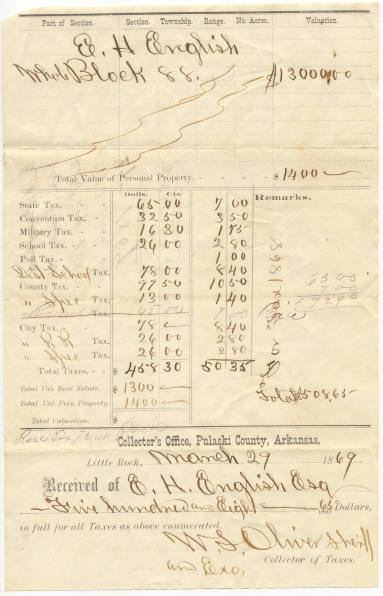 Part of Section. Section. Township. Range. No. Acres. Valuation.
E. H English
Whole Block 88. $13000,00
Total Value of Personal Property, $ 1400
Dolls. Cts. Remarks.
State Tax. 65 00 7 00
Convention Tax. 32 50 3 50
Military Tax. 16 30 1 75
School Tax. 26 00 2 80
Poll Tax. 1 00
Dist School Tax. 78 00 8 40
County Tax. 97 50 10 50 65 00
" Spec Tax. 13 00 1 40 7 00
65 00 7 00
City Tax. 78 8 40
" R R Tax. 26 00 2 80
" Spec Tax. 26 00 2 80
Total Taxes, $ 458 30 50 35
Total Val. Real Estate. $ 1300
Total $508,65
Total Val. Pers. Property. $ 1400
Total Valuation. $
Collector's Office, Pulaski County, Arkansas,
Little Rock, March 29 1869
Received of E. H. English Esq
Five hundred and Eight 65/100 Dollars,
in full for all Taxes as above enumerated.
W. S. Oliver Sheriff
and Exo. Collector of Taxes.